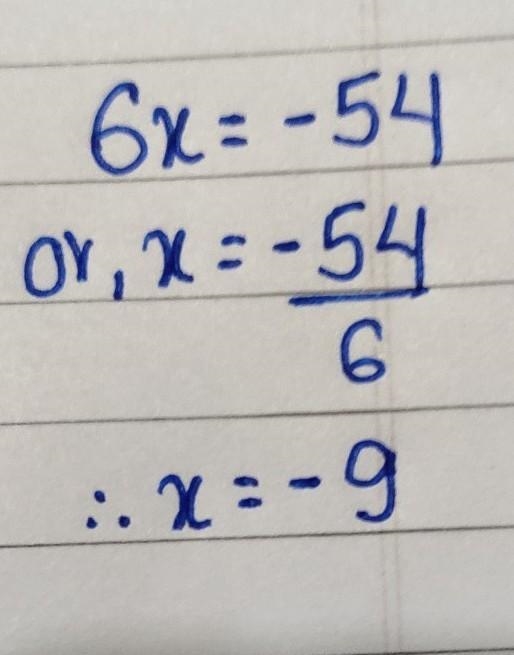 6x = -54
or, x = -54/6
∴ x = -9